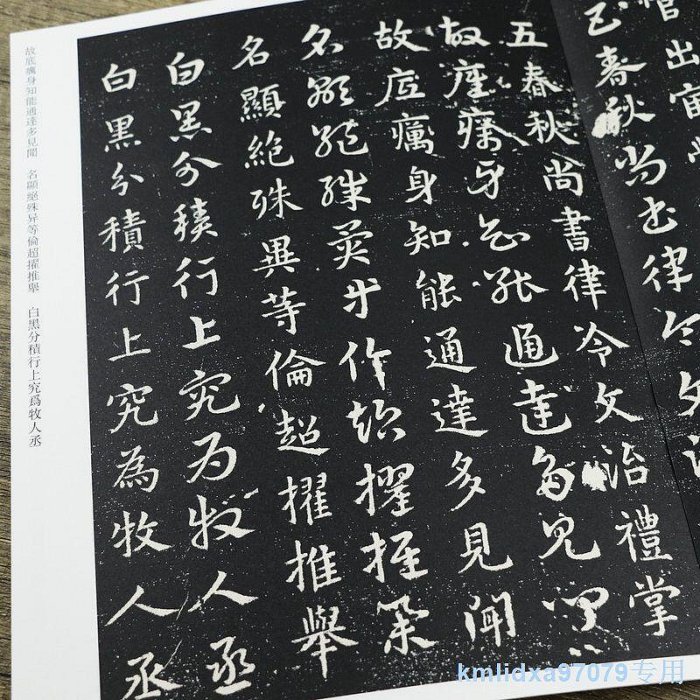 五春秋尚書律令文
五春秋尚書律冷文治禮掌
故底癘身知能通達多見聞
故底癘身知能通達多見聞
名顯絕殊異等倫超擢推舉
名顯絕殊異等倫超擢推舉
白黑分積行上究為牧人丞
白黑分積行上究為牧人丞
故底癘身知能通達多見聞　名顯絕殊异等倫超擢推舉　白黑分積行上究爲牧人丞
kmlidxa97079专用